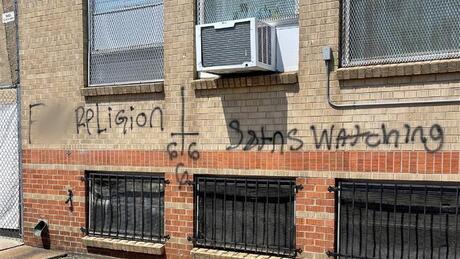 F RELigion
6 6
6
Satns WAtching